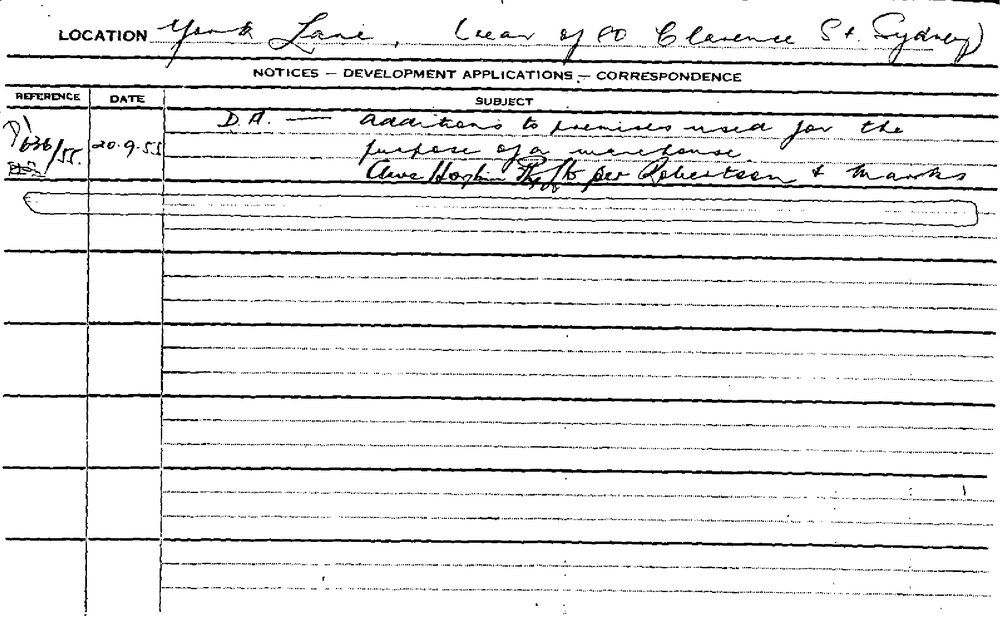 LOCATION York Lane, (rear of 80 Clarence St. Sydney)
NOTICES — DEVELOPMENT APPLICATIONS — CORRESPONDENCE
REFERENCE DATE SUBJECT
D.A. — additions to premises used for the
636/55. 20.9.55 purpose of a warehouse.
P/L per Robertson & Marks